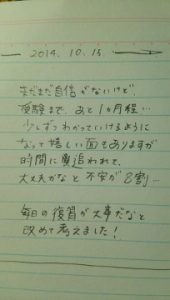 2014. 10. 15.
まだまだ自信がないけど、
受験まで、あと1ヵ月程…
少しずつわかっていけるように
なって嬉しい面もありますが
時間に追われて、
大丈夫かなと不安が8割…
毎日の復習が大事だなと
改めて考えました！